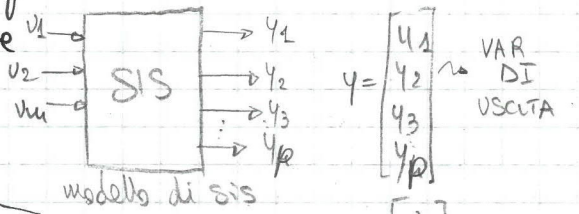 e
v1
v2
vm
SIS
y1
y2
y3
⋮
yp
modello di sis
y = [y1 y2 y3 yp]
VAR
DI
USCITA